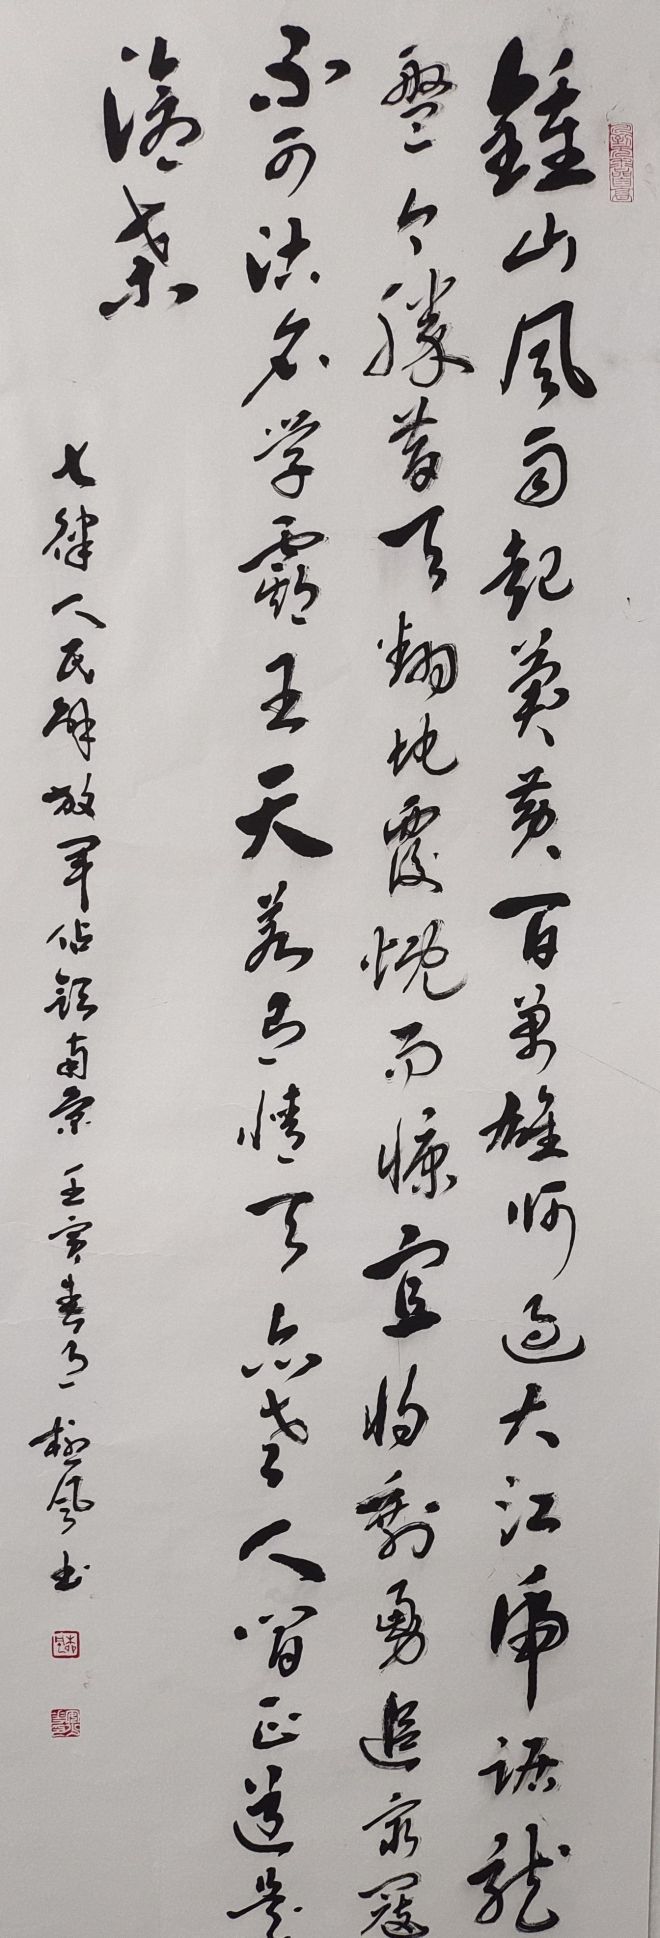 鍾山風雨起蒼黃百萬雄師過大江虎踞龍
盤今勝昔天翻地覆慨而慷宜將剩勇追窮寇
不可沽名学霸王天若有情天亦老人間正道是
滄桑
七律人民解放軍佔領南京 壬寅春月 風书